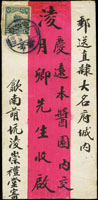 郵送直隸大名府城內
慶遠本醬園內交
淩月卿先生收啟
歙南萌坑淩崇禮堂寄